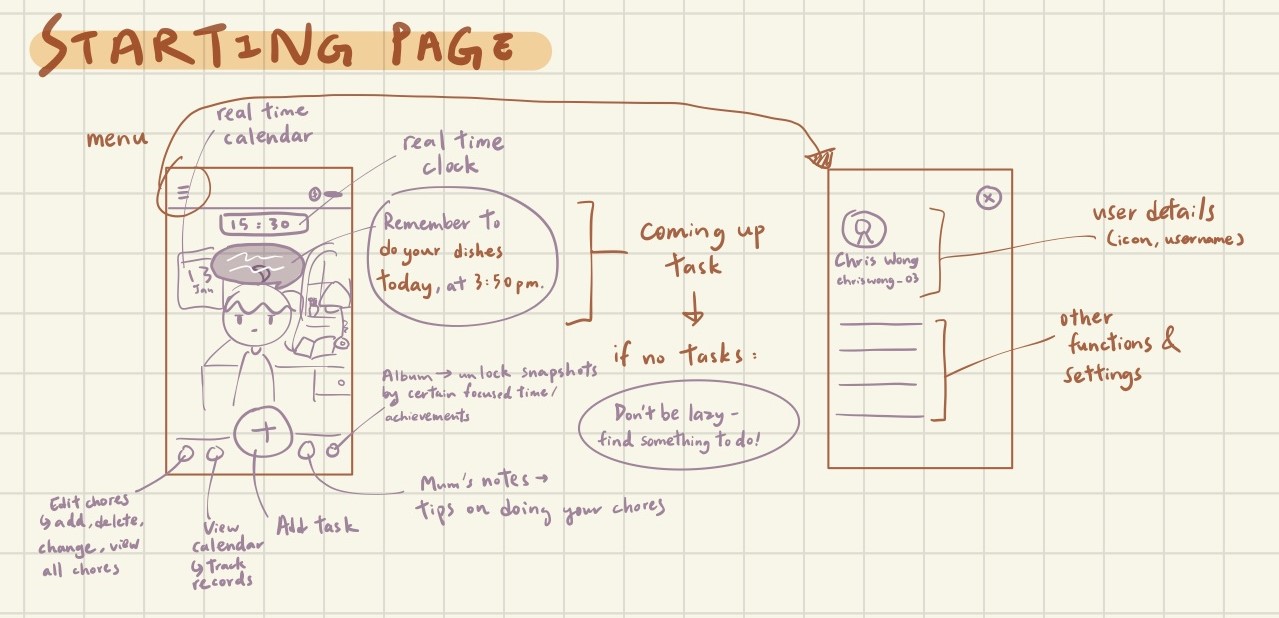 STARTING PAGE
menu
real time
calendar
real time
clock
15:30
13
Jan
Remember to
do your dishes
today, at 3:50pm.
Coming up
task
if no tasks:
Don't be lazy -
find something to do!
Album → unlock snapshots
by certain focused time/
achievements
Mum's notes →
tips on doing your chores
Add task
View
calendar
↳ Track
records
Edit chores
↳ add, delete,
change, view
all chores
Chris Wong
chriswong_03
user details
(icon, username)
other
functions &
settings